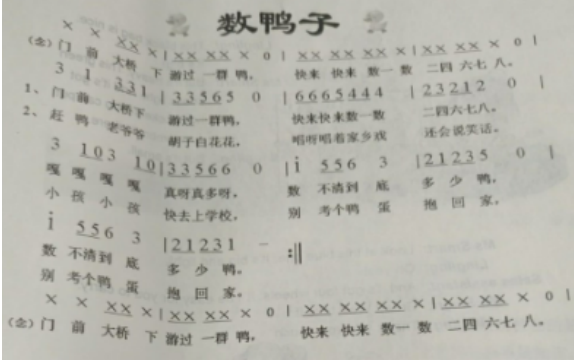 数鸭子
X X XX X | XX XX X 0 | XX XX XX X | XX XX X 0 |
(念)门 前 大桥 下 游过 一群 鸭, 快来 快来 数一 数 二四 六七 八。
3 1 331 | 33565 0 | 6665444 | 23212 0 |
1、门 前 大桥下 游过一群鸭, 快来快来数一数 二四六七八。
2、赶 鸭 老爷爷 胡子白花花, 唱呀唱着家乡戏 还会说笑话。
3 103 10 | 33566 0 | i 556 3 | 21235 0 |
嘎 嘎 嘎 嘎 真呀真多呀, 数 不清到 底 多 少 鸭,
小 孩 小 孩 快去上学校, 别 考个鸭 蛋 抱 回 家。
i 556 3 | 21231 - :||
数 不清到 底 多 少 鸭。
别 考个鸭 蛋 抱 回 家。
X X XX X | XX XX X 0 | XX XX XX X | XX XX X 0 |
(念)门 前 大桥 下 游过 一群 鸭, 快来 快来 数一 数 二四 六七 八。